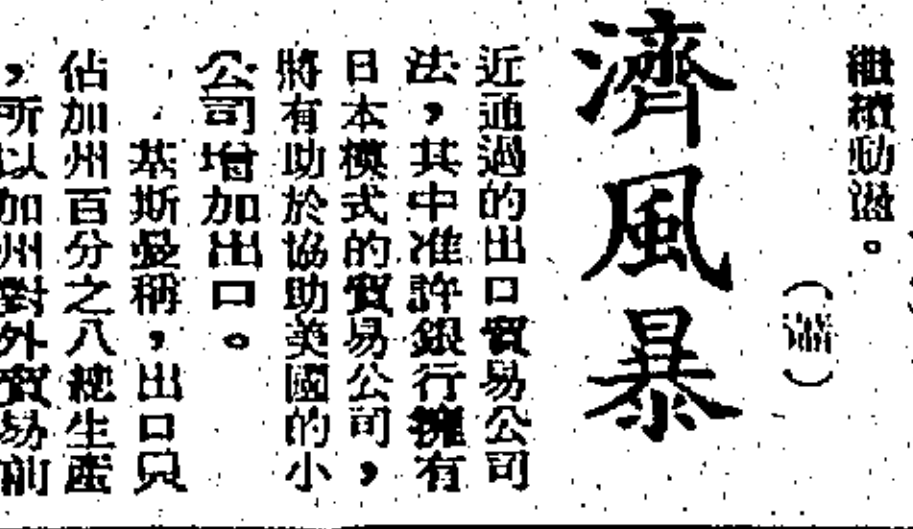 繼續動盪。
濟風暴
近通過的出口貿易公司
法，其中准許銀行擁有
日本模式的貿易公司，
將有助於協助美國的小
公司增加出口。
基斯曼稱，出口貝
佔加州百分之八總生產
，所以加州對外貿易前